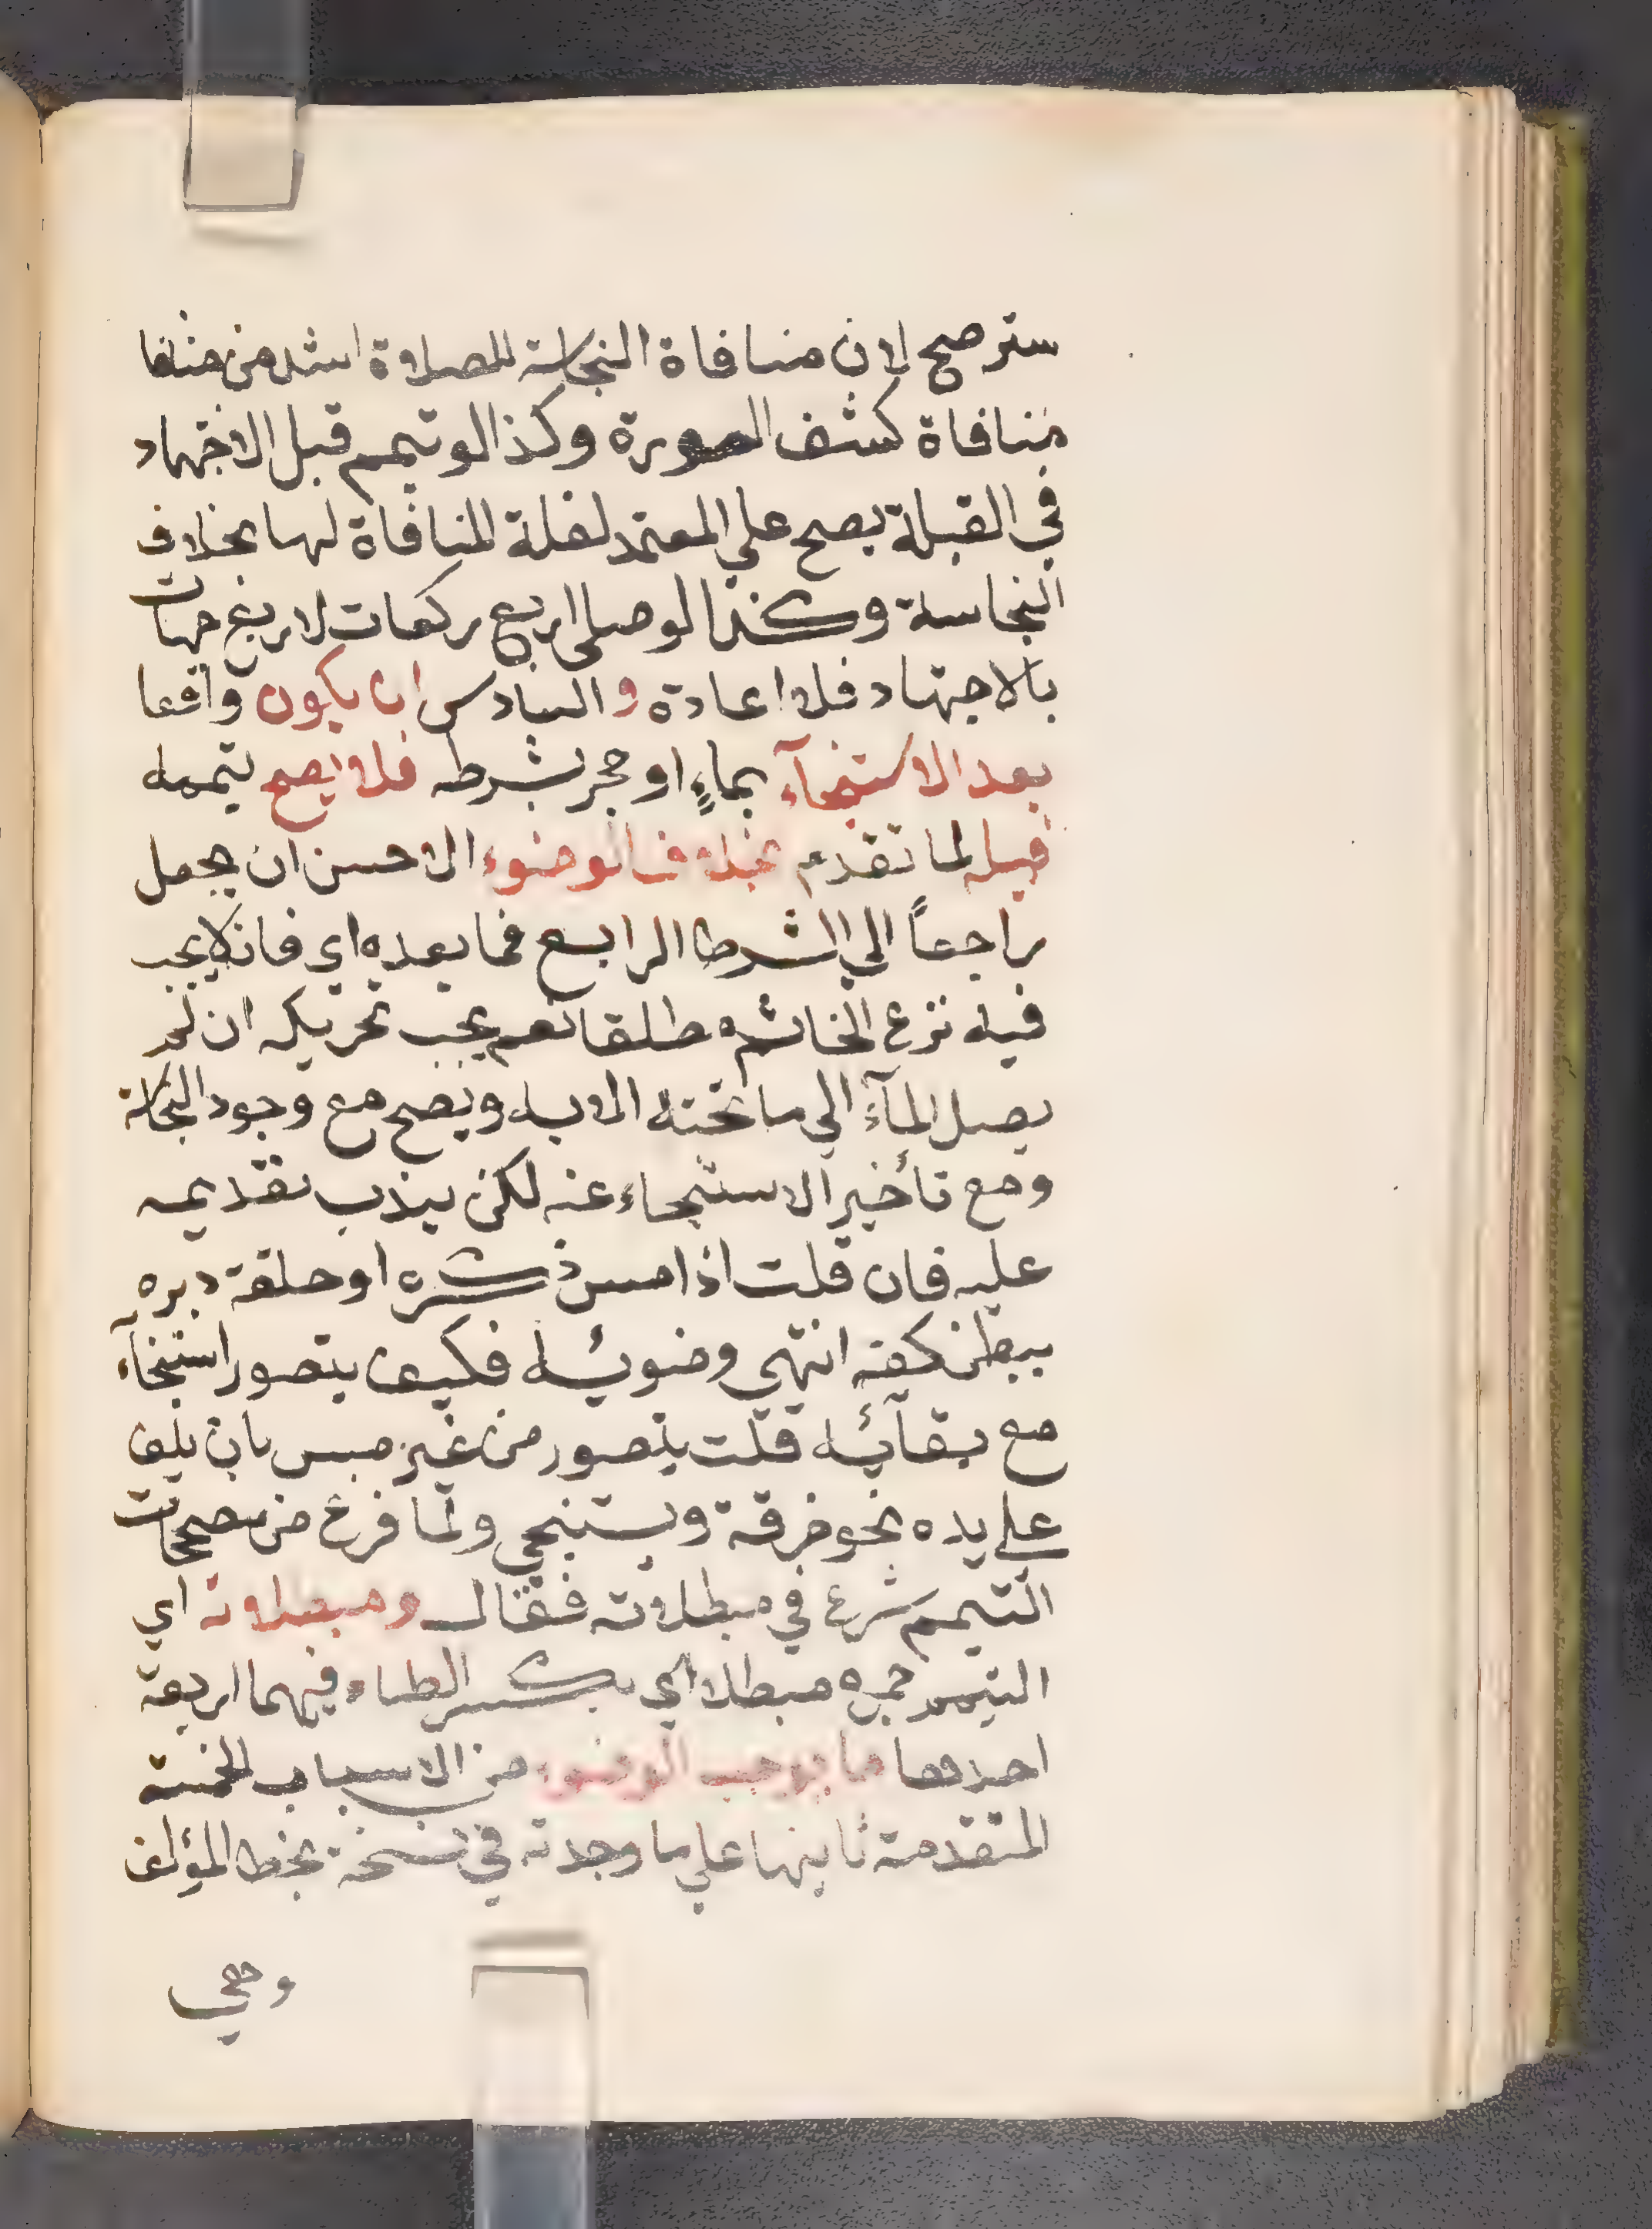 ستر صح لان منافاة النجاسة للصلاة اشد من منافا
منافاة كشف العورة وكذا لو تيمم قبل الاجتهاد
في القبلة يصح علي المعتمد لقلة المنافاة لها بخلاف
النجاسة وكذا لو صلى اربع ركعات لاربع جهات
بالاجتهاد فلا اعادة والسادس ان يكون واقعا
بعد الاستنجآء بماءٍ او حجر بشرطه فلا يصح تيممه
قبله لما تقدم بخلاف الوضوء الاحسن ان يجعل
راجعاً الي الشرط الرابع فما بعده اي فانه لا يجب
فيه نزع الخاتم مطلقا نعم يجب تحريكه ان لم
يصل المآء الي ما تحته الا به ويصح مع وجود النجاسة
ومع تأخير الاستنجاء عنه لكن يندب تقديمه
عليه فان قلت اذا مس ذكره او حلقة دبره
ببطن كفه انتهي وضوئه فكيف يتصور استنجآء
مع بقآئه قلت يتصور من غير مس بان يلف
علي يده نحو خرقة ويستنجي ولما فرغ من مصححات
التيمم شرع في مبطلاته فقال ومبطلاته اي
التيمم جمع مبطل اي بكسر الطاء فيهما اربعة
احدها ما يوجب الوضوء من الاسباب الخمسة
المتقدمة ثانيها علي ما وجدته في نسخة بخط المؤلف
وهي